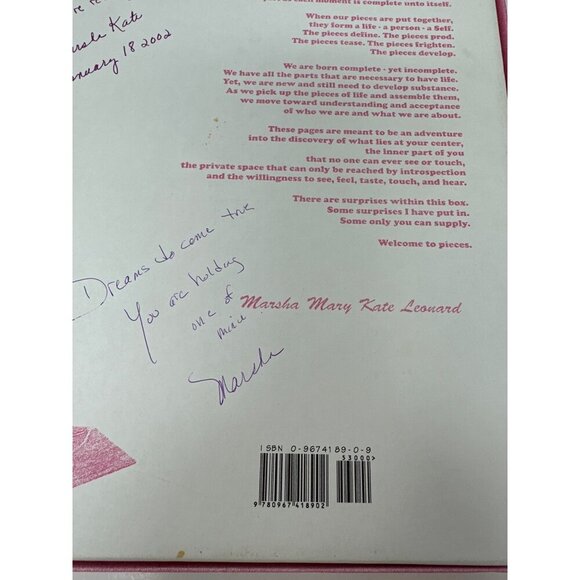 Kate
January 18 2002
each moment is complete unto itself.
When our pieces are put together,
they form a life - a person - a Self.
The pieces define. The pieces prod.
The pieces tease. The pieces frighten.
The pieces develop.
We are born complete - yet incomplete.
We have all the parts that are necessary to have life.
Yet, we are new and still need to develop substance.
As we pick up the pieces of life and assemble them,
we move toward understanding and acceptance
of who we are and what we are about.
These pages are meant to be an adventure
into the discovery of what lies at your center,
the inner part of you
that no one can ever see or touch,
the private space that can only be reached by introspection
and the willingness to see, feel, taste, touch, and hear.
There are surprises within this box.
Some surprises I have put in.
Some only you can supply.
Welcome to pieces.
Dreams do come true
You are holding
one of
mine
Marsha
Marsha Mary Kate Leonard
ISBN 0-9674189-0-9
53000>
9 780967 418902